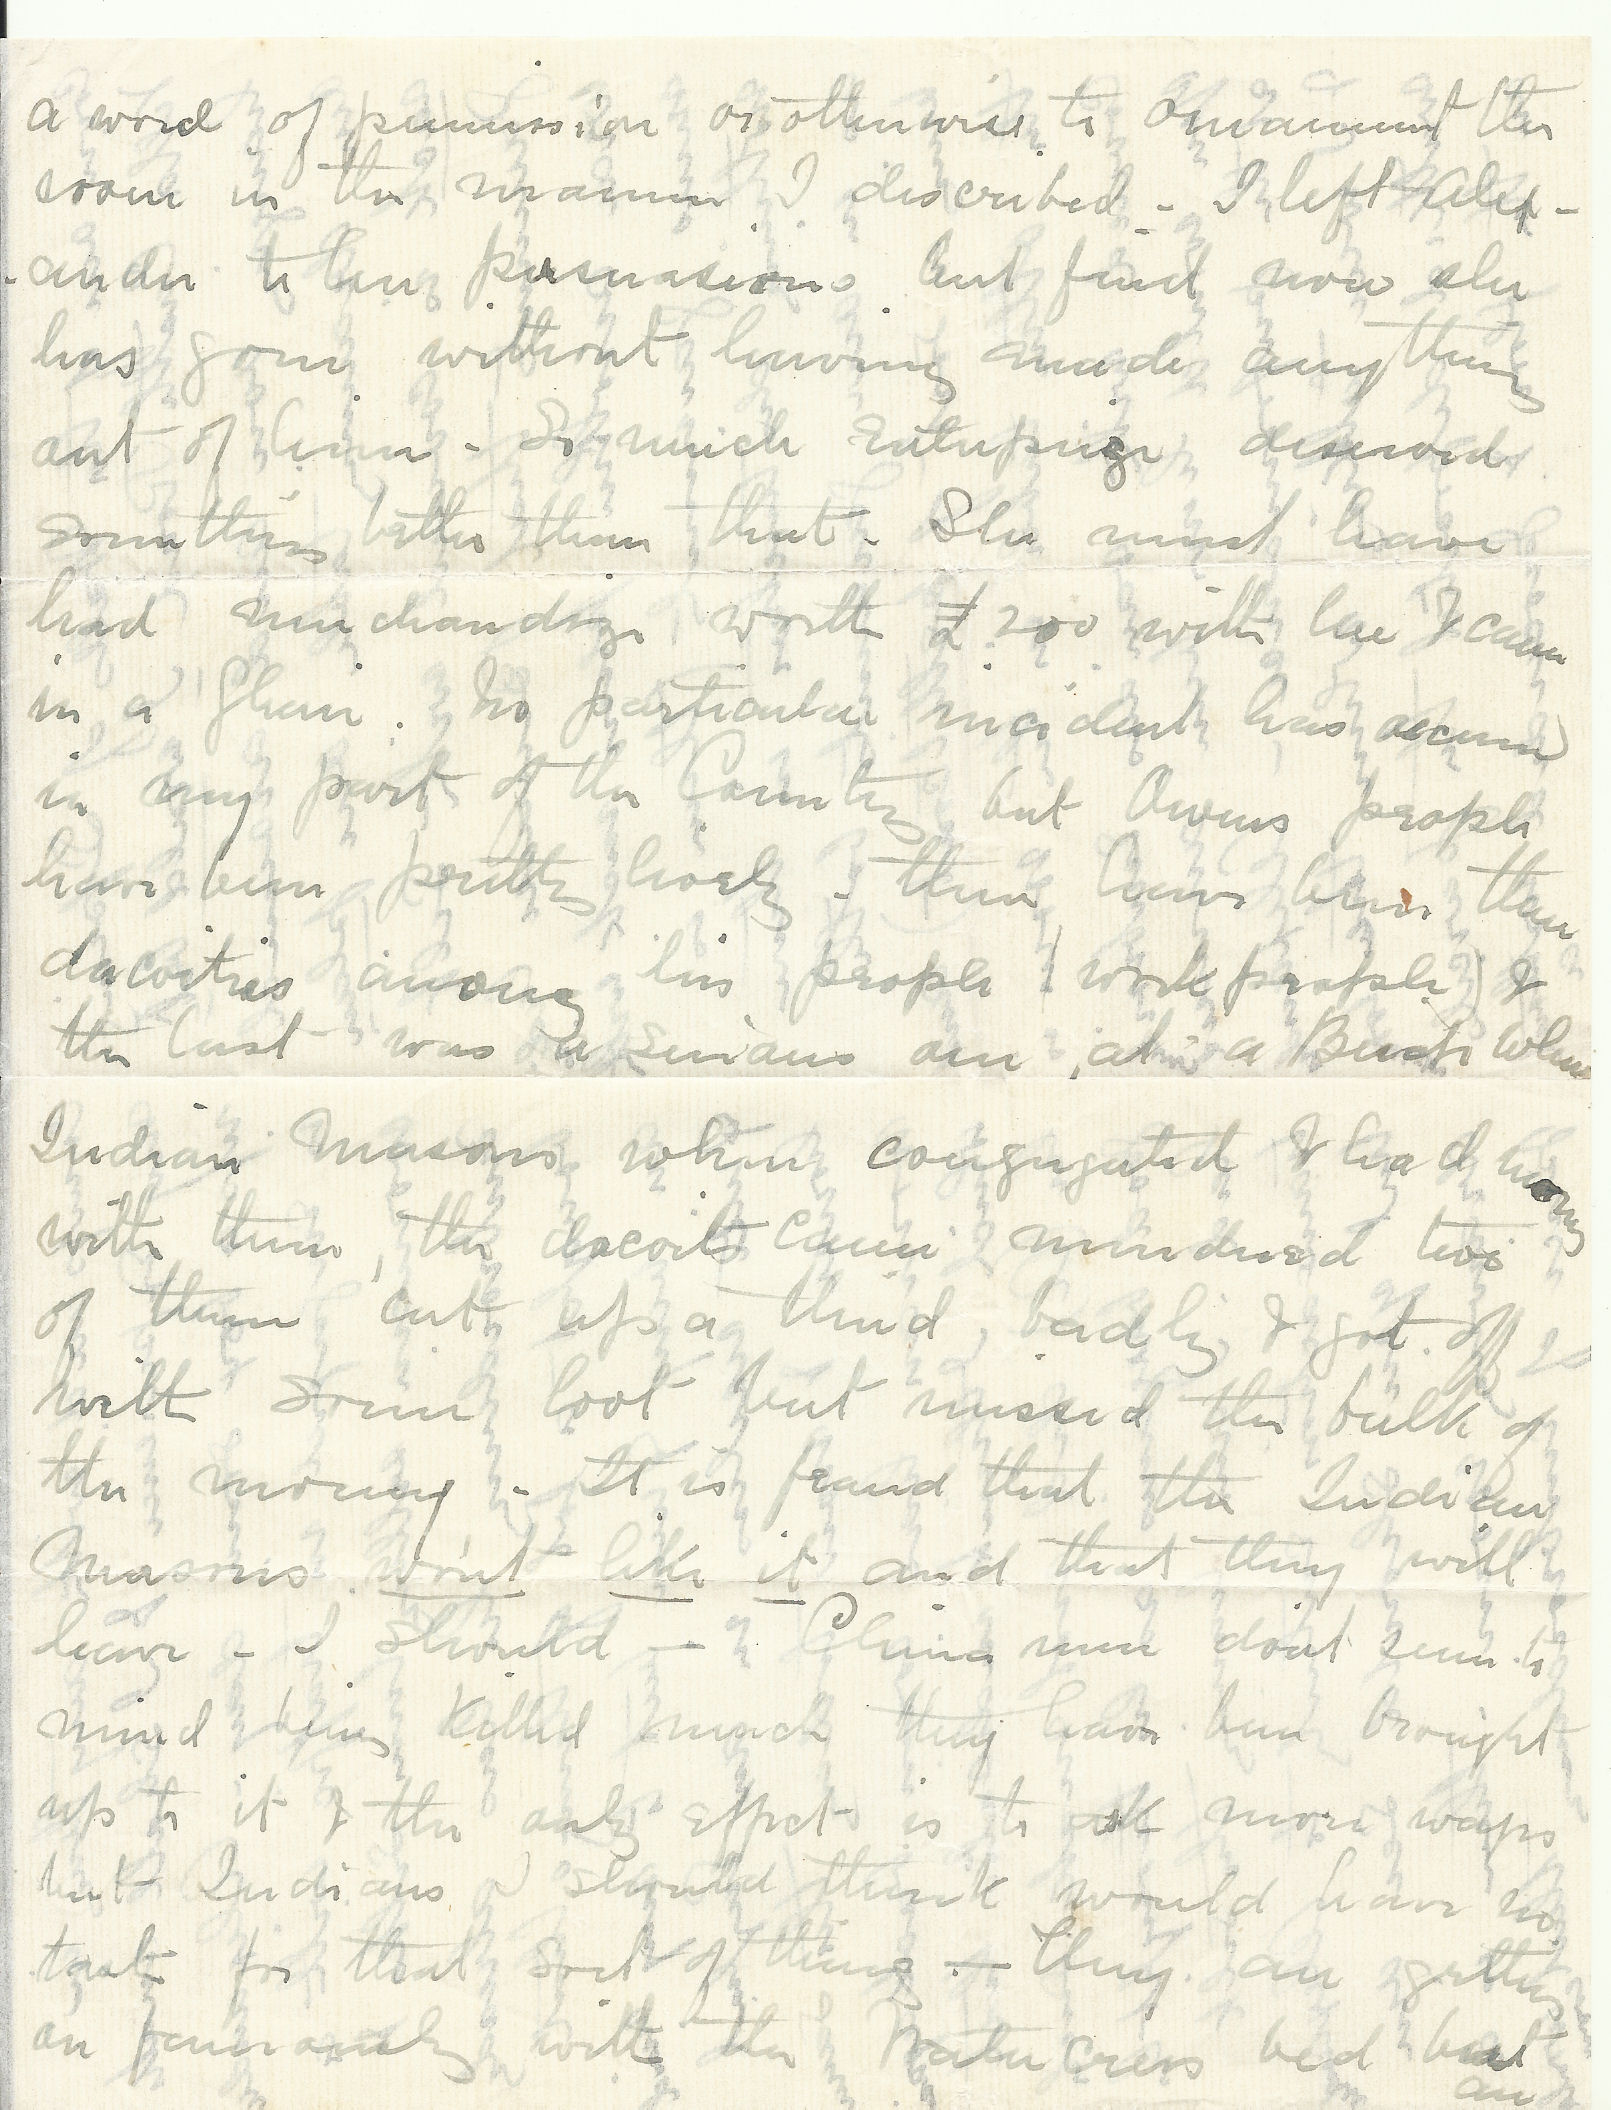 a word of permission or otherwise to ornament the
room in the manner I described - I left Alex-
-ander to her persuasions but find now she
has gone without having made anything
out of him - So much enterprise deserved
something better than that - She must have
had merchandize worth £200 with her & came
in a Ghari. No particular incident has occurred
in my part of the Country but Owens people
have been pretty lively - there have been three
dacoities among his people (work people) &
the last was a serious one, at a Bridge where
Indian Masons where congregated & had money
with them, the dacoits came murdered two
of them cut up a third badly & got off
with some loot but missed the bulk of
the money - It is feared that the Indian
Masons won't like it and that they will
leave - I should — China men dont seem to
mind being killed much they have been brought
up to it & the only effect is to ask more wages
but Indians I should think would have no
taste for that sort of thing — They are getting
on famously with the Water Cress bed but
an